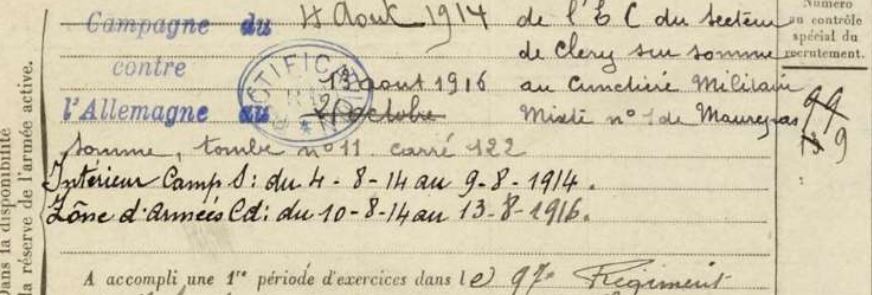 Campagne du 4 Aout 1914 de l'E C du secteur
de Clery sur somme
contre 13 aout 1916 au Cimetière Militaire
l'Allemagne au octobre Mixte n° 1 de Maurepas
Somme, tombe n° 11 carré 122
Intérieur Camp S: du 4-8-14 au 9-8-1914.
Zône d'Armées Cd: du 10-8-14 au 13-8-1916.
A accompli une 1re période d'exercices dans le 97e Régiment
Numéro
au contrôle
spécial du
recrutement.
9
Dans la disponibilité
la réserve de l'armée active.